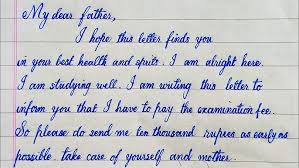 My dear father,
I hope this letter finds you
in your best health and sprits. I am alright here.
I am studying well. I am writing this letter to
inform you that I have to pay the examination fee.
So please do send me ten thousand rupees as early as
possible. take care of yourself and mother.